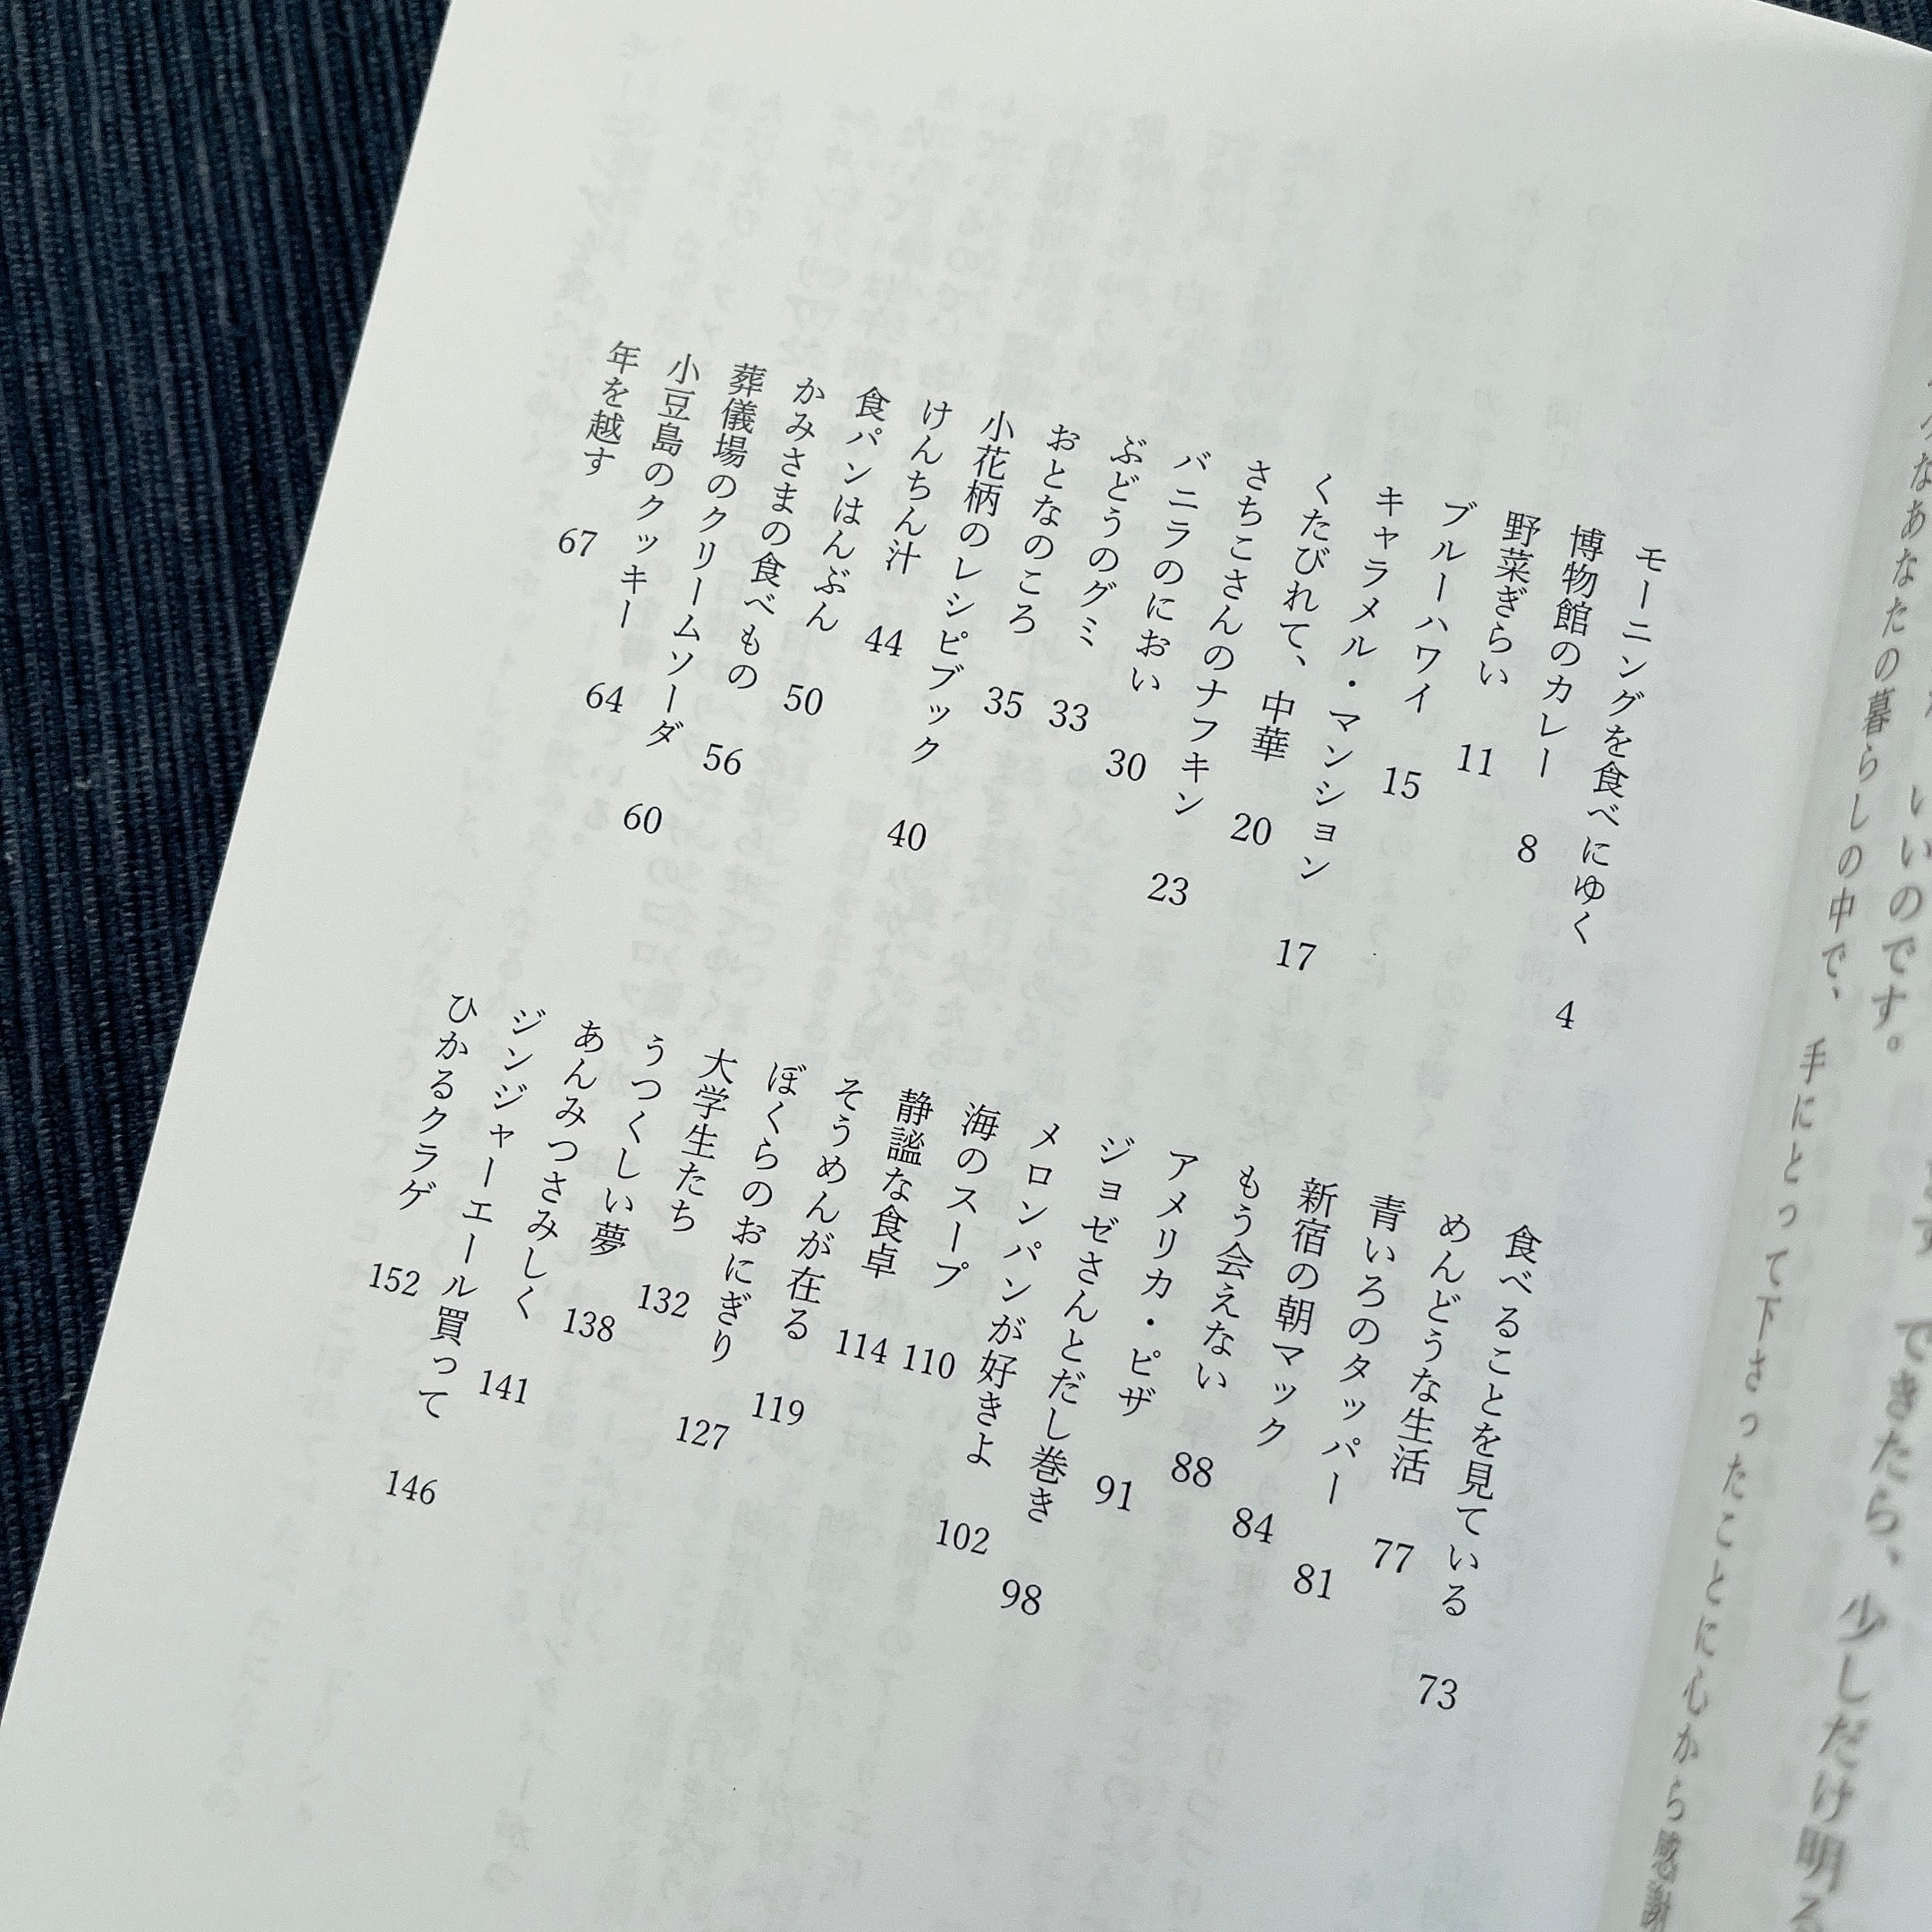 できたら、少しだけ明る
いいのです。
なあなたの暮らしの中で、手にとって下さったことに心から感謝
モーニングを食べにゆく 4
博物館のカレー 8
野菜ぎらい 11
ブルーハワイ 15
キャラメル・マンション 17
くたびれて、中華 20
さちこさんのナフキン 23
バニラのにおい 30
ぶどうのグミ 33
おとなのころ 35
小花柄のレシピブック 40
けんちん汁 44
食パンはんぶん 50
かみさまの食べもの 56
葬儀場のクリームソーダ 60
小豆島のクッキー 64
年を越す 67
食べることを見ている 73
めんどうな生活 77
青いろのタッパー 81
新宿の朝マック 84
もう会えない 88
アメリカ・ピザ 91
ジョゼさんとだし巻き 98
メロンパンが好きよ 102
海のスープ 110
静謐な食卓 114
そうめんが在る 119
ぼくらのおにぎり 127
大学生たち 132
うつくしい夢 138
あんみつさみしく 141
ジンジャーエール買って 146
ひかるクラゲ 152